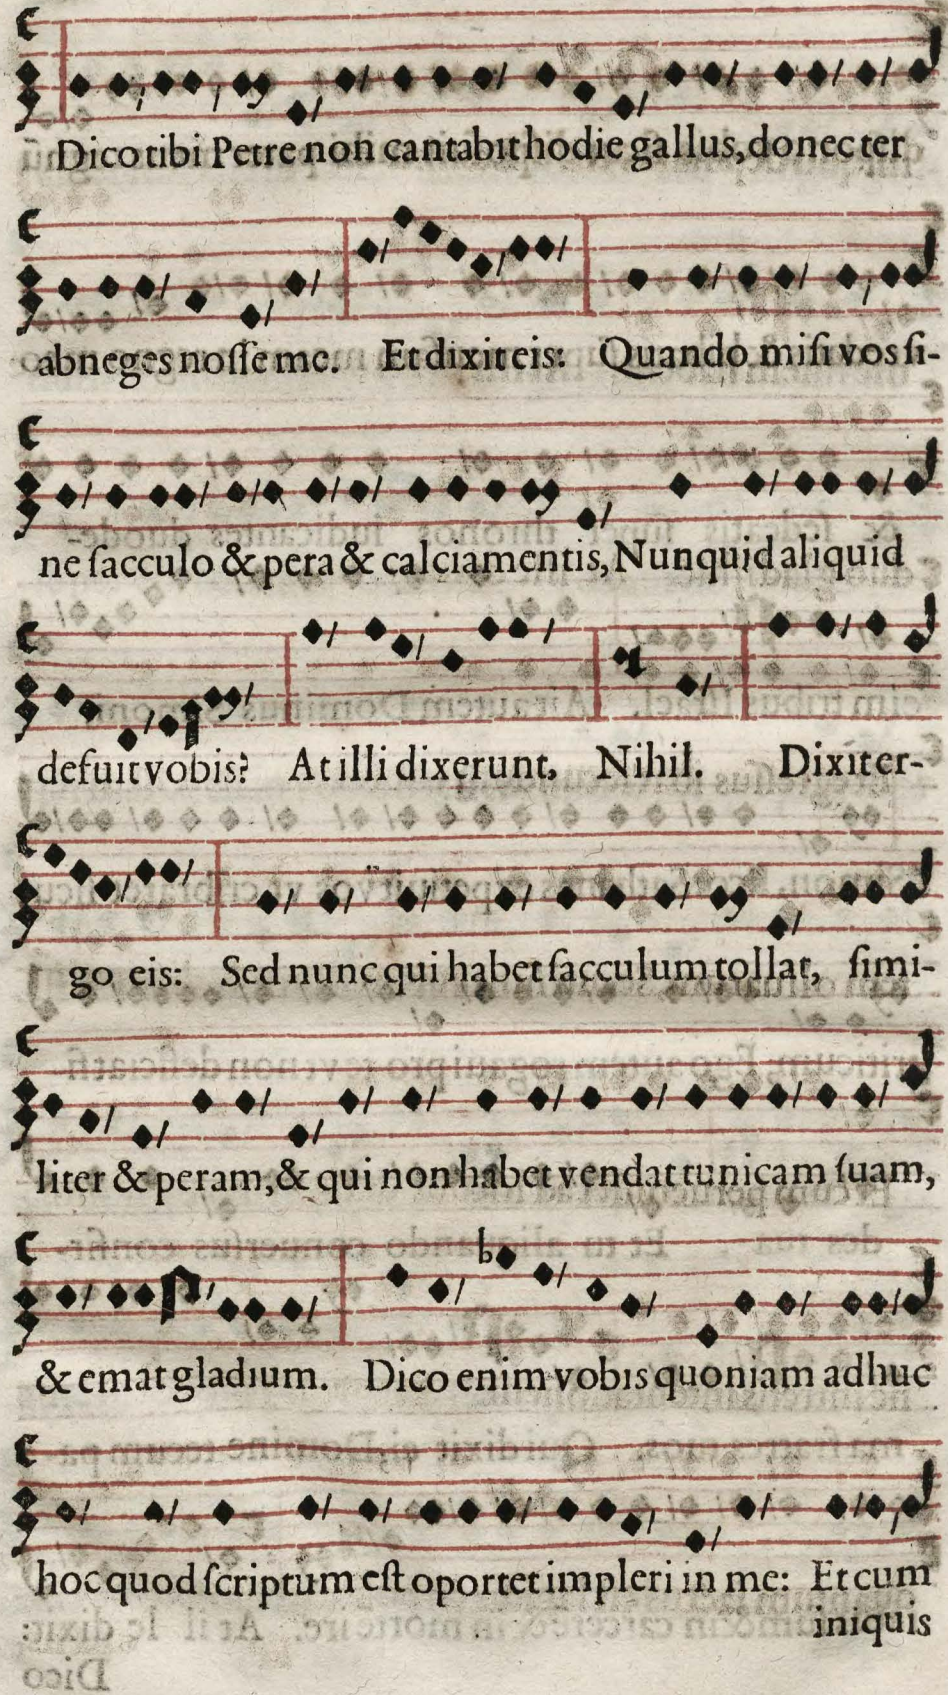 Dico tibi Petre non cantabit hodie gallus, donec ter
abneges nosse me. Et dixit eis: Quando misi vos si-
ne sacculo & pera & calciamentis, Nunquid aliquid
defuit vobis? At illi dixerunt, Nihil. Dixit er-
go eis: Sed nunc qui habet sacculum tollat, simi-
liter & peram, & qui non habet vendat tunicam suam,
& emat gladium. Dico enim vobis quoniam adhuc
hoc quod scriptum est oportet impleri in me: Et cum
iniquis